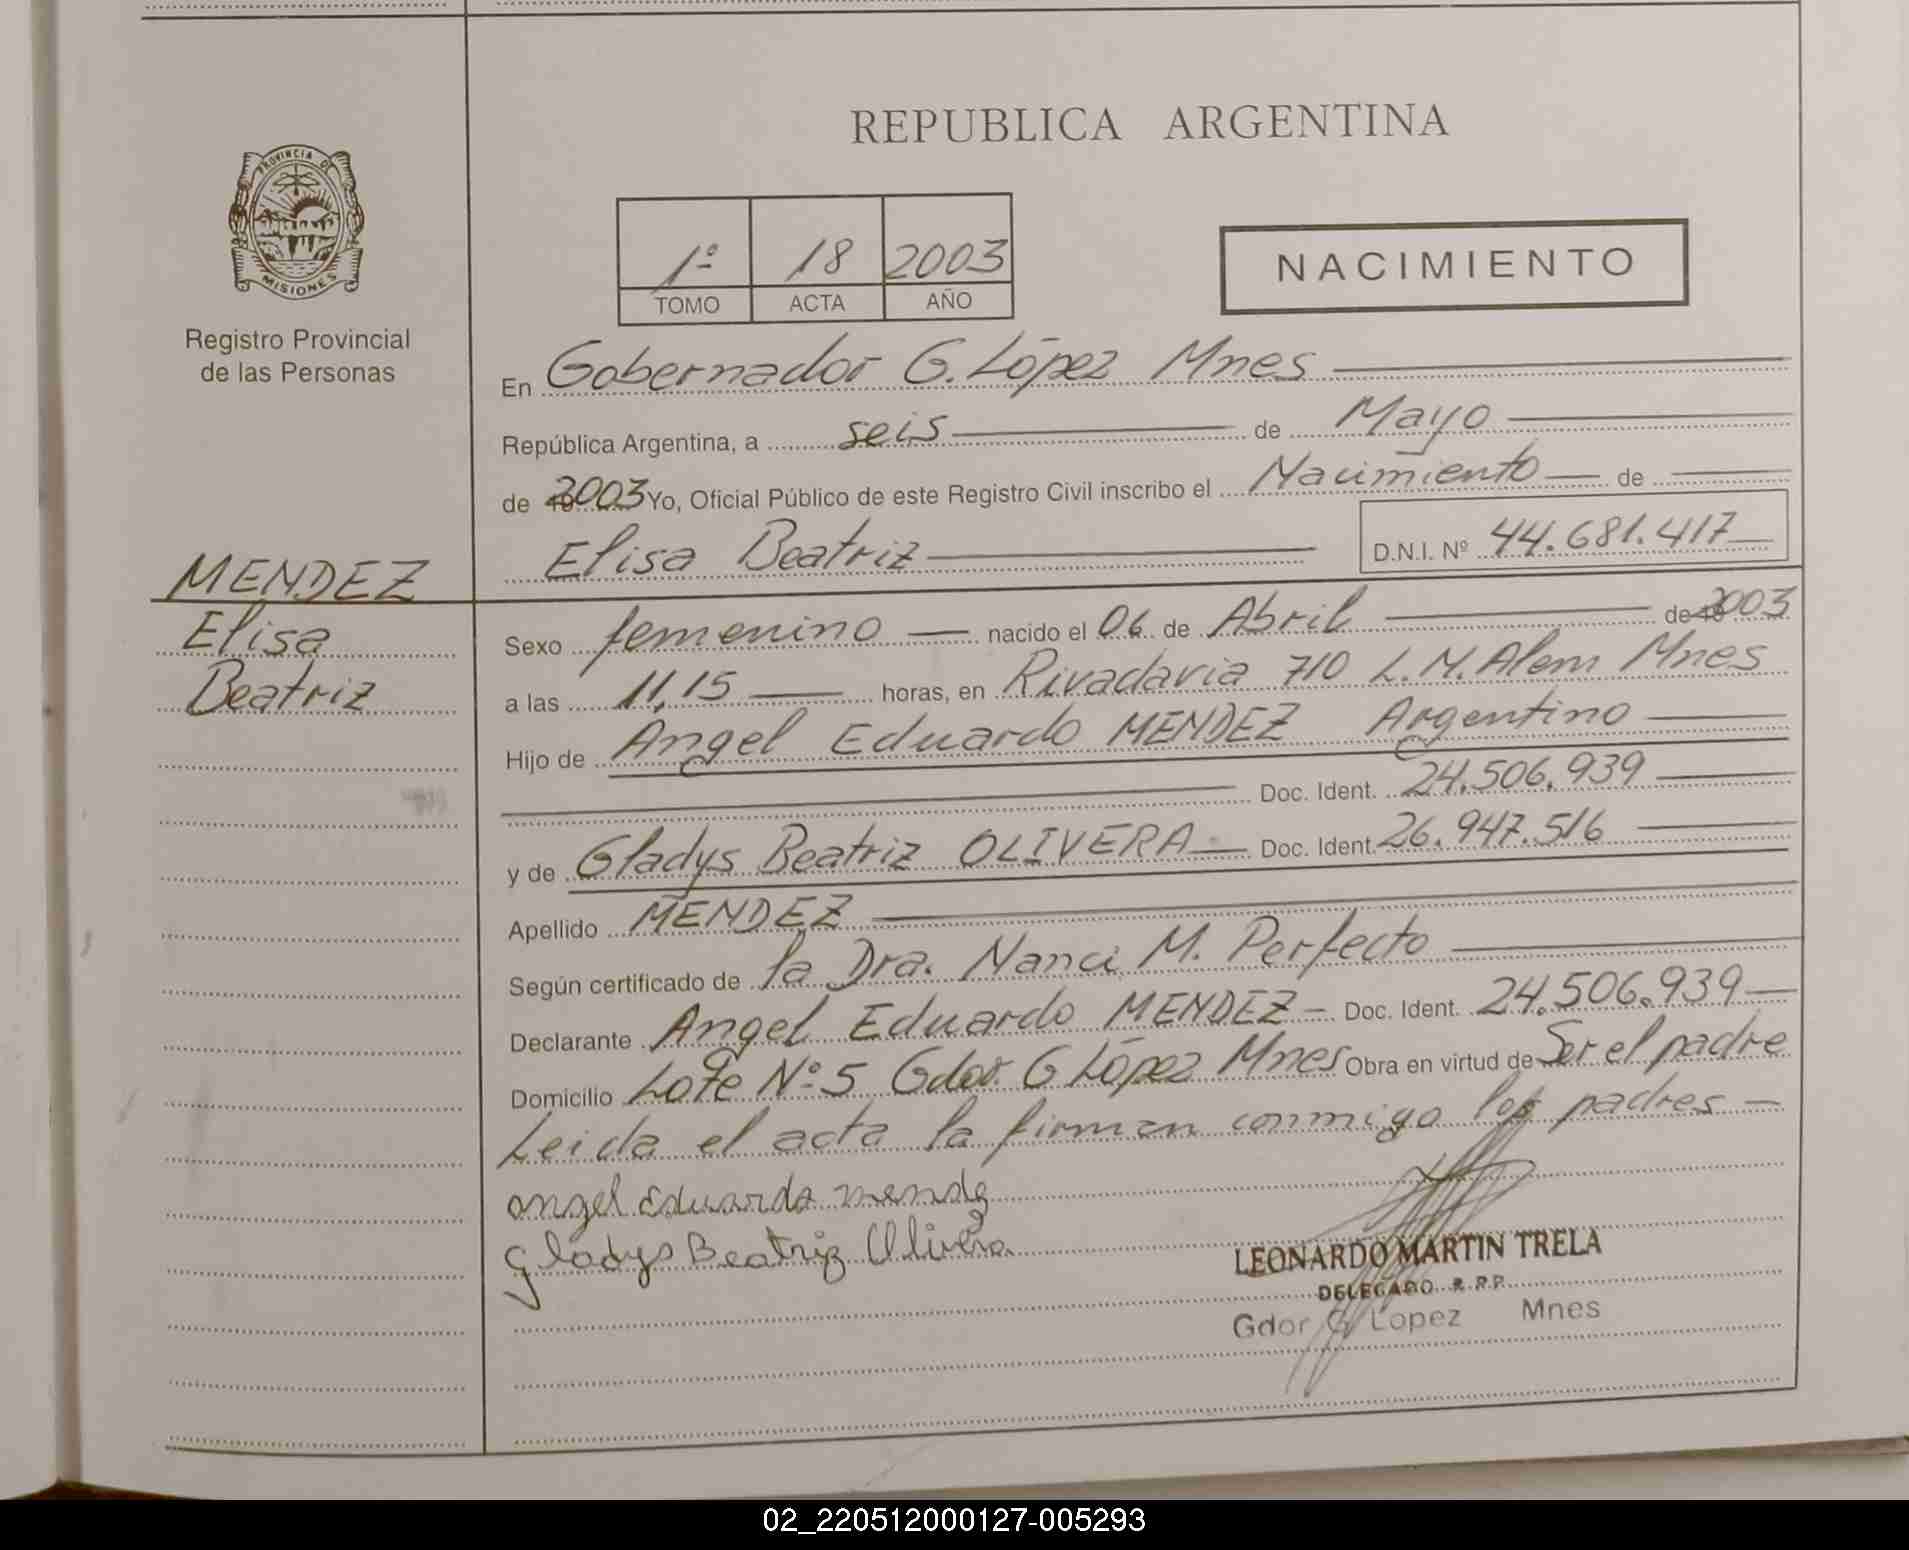 REPUBLICA ARGENTINA
PROVINCIA DE
MISIONES
Registro Provincial
de las Personas
1º 18 2003
TOMO ACTA AÑO
NACIMIENTO
En Gobernador G. López Mnes
República Argentina, a seis de Mayo
de 2003 Yo, Oficial Público de este Registro Civil inscribo el Nacimiento de
Elisa Beatriz D.N.I. Nº 44.681.417
MENDEZ
Elisa
Beatriz
Sexo femenino nacido el 06 de Abril de 19 2003
a las 11,15 horas, en Rivadavia 710 L.N.Alem Mnes
Hijo de Angel Eduardo MENDEZ Argentino
Doc. Ident. 24.506.939
y de Gladys Beatriz OLIVERA Doc. Ident. 26.947.516
Apellido MENDEZ
Según certificado de la Dra. Nanci M. Perfecto
Declarante Angel Eduardo MENDEZ - Doc. Ident. 24.506.939
Domicilio Lote Nº 5 Gdor. G López Mnes Obra en virtud de Ser el padre
Leida el acta la firman conmigo los padres -
angel Eduardo mendez
gladys Beatriz Olivera
LEONARDO MARTIN TRELA
DELEGADO R.P.P.
Gdor G Lopez Mnes
02_220512000127-005293